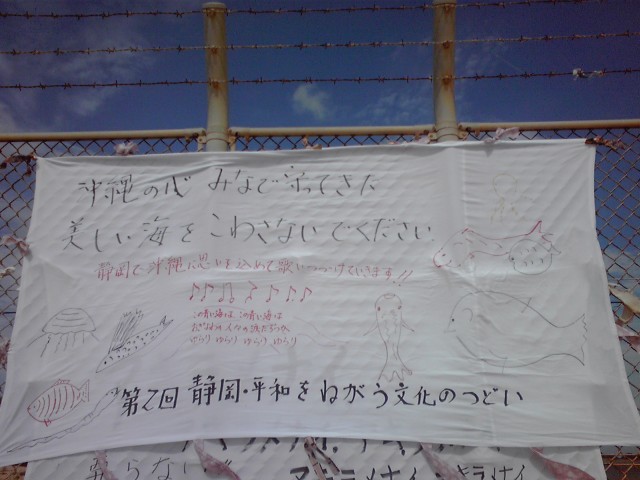 沖縄の心 みなで守ってきた
美しい海をこわさないでください
静岡で沖縄に思いを込めて歌いつづけていきます!!
♪♪♫♪♪♪♪
この青い海は この青い海は
人々の
ゆらり ゆらり ゆらり ゆらり
第2回 静岡・平和をねがう文化のつどい
らない